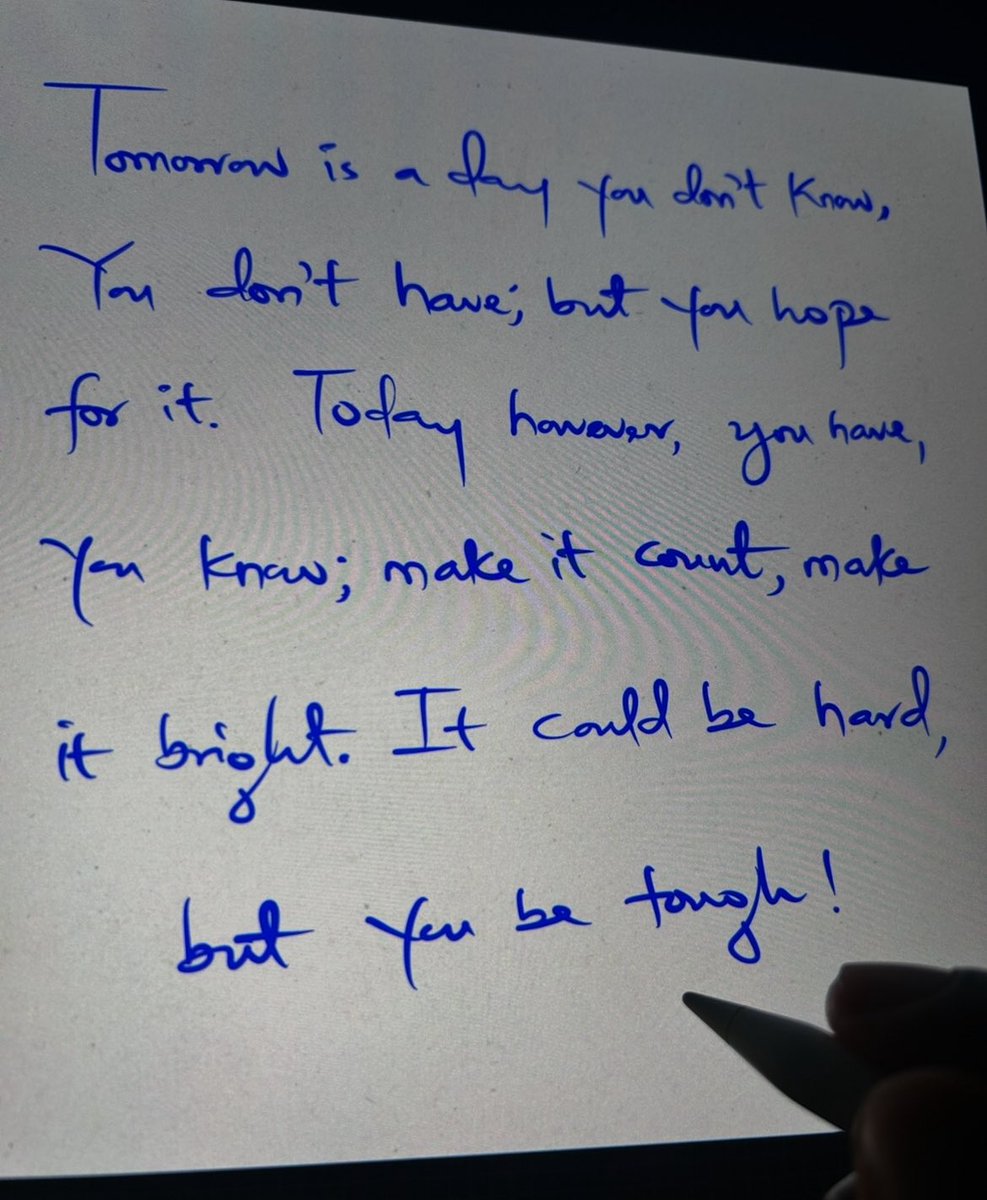 Tomorrow is a day you don't know,
You don't have; but you hope
for it. Today however, you have,
You know; make it count, make
it bright. It could be hard,
but you be tough!